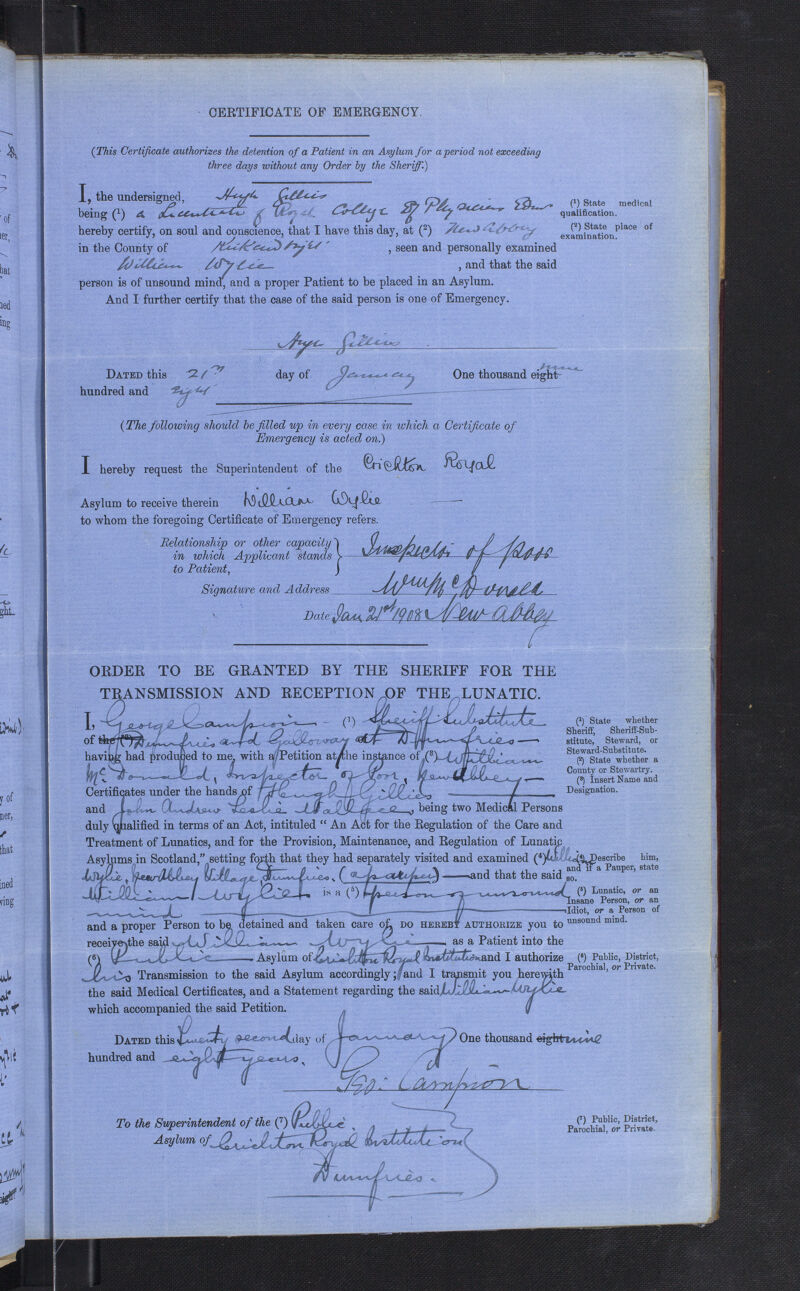 CERTIFICATE OF EMERGENCY.
(This Certificate authorizes the detention of a Patient in an Asylum for a period not exceeding
three days without any Order by the Sheriff.)
I, the undersigned, Hugh Gillies
being (1) a Licentiate of Royal College of Physicians Edinr
(1) State medical
qualification.
hereby certify, on soul and conscience, that I have this day, at (2) New Abbey
(2) State place of
examination.
in the County of Kirkcudbright, seen and personally examined
William Wylie, and that the said
person is of unsound mind, and a proper Patient to be placed in an Asylum.
And I further certify that the case of the said person is one of Emergency.
Hugh Gillies
DATED this 21st day of January One thousand eight nine
hundred and eight
(The following should be filled up in every case in which a Certificate of
Emergency is acted on.)
I hereby request the Superintendent of the Crichton Royal
Asylum to receive therein William Wylie
to whom the foregoing Certificate of Emergency refers.
Relationship or other capacity
in which Applicant stands
to Patient,
Inspector of Poor
Signature and Address Wm McDonald
Date Jan 21st 1908 New Abbey
ORDER TO BE GRANTED BY THE SHERIFF FOR THE
TRANSMISSION AND RECEPTION OF THE LUNATIC.
I, George Campion (1) Sheriff-Substitute
of the (2) Dumfries and Galloway at Dumfries
having had produced to me, with a Petition at the instance of (3) William
McDonald, Inspector of Poor, New Abbey
Certificates under the hands of Hugh Gillies
and John Andrew Leslie Wallace, being two Medical Persons
(1) State whether
Sheriff, Sheriff-Sub-
stitute, Steward, or
Steward-Substitute.
(2) State whether a
County or Stewartry.
(3) Insert Name and
Designation.
duly qualified in terms of an Act, intituled “ An Act for the Regulation of the Care and
Treatment of Lunatics, and for the Provision, Maintenance, and Regulation of Lunatic
Asylums in Scotland,” setting forth that they had separately visited and examined (4) William
Wylie, New Abbey Village, Dumfries. (a pauper) and that the said
(4) Describe him,
and if a Pauper, state
so.
William Wylie is a (5) person of unsound
mind
(5) Lunatic, or an
Insane Person, or an
Idiot, or a Person of
unsound mind.
and a proper Person to be detained and taken care of, DO HEREBY AUTHORIZE you to
receive the said William Wylie as a Patient into the
(6) Public Asylum of Crichton Royal Institution and I authorize
his Transmission to the said Asylum accordingly; and I transmit you herewith
(6) Public, District,
Parochial, or Private.
the said Medical Certificates, and a Statement regarding the said William Wylie
which accompanied the said Petition.
DATED this Twenty second day of January One thousand eight nine
hundred and eight years.
Geo: Campion
To the Superintendent of the (7) Public
Asylum of Crichton Royal Institution
Dumfries.
(7) Public, District,
Parochial, or Private.